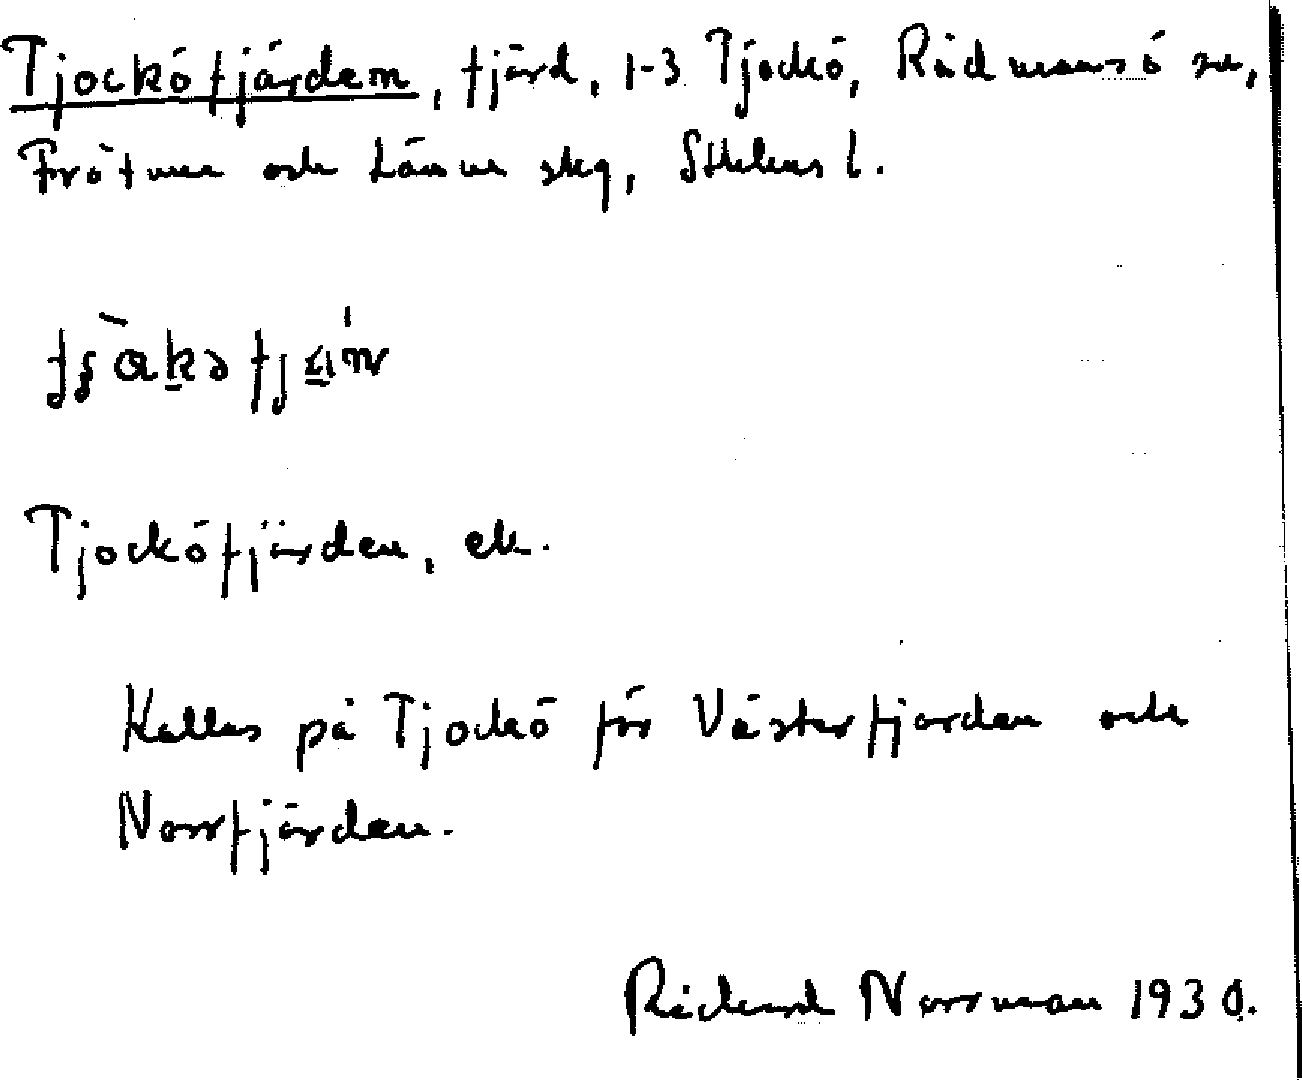 Tjockö fjärden, fjärd, 1-3 Tjockö, Rådmansö sn,
Frötuna och Länna skg, Sthlms l.
Tjocköfjärden, ek.
Kallas på Tjockö för Västerfjärden och
Norrfjärden.
Rickard Norrman 1930.